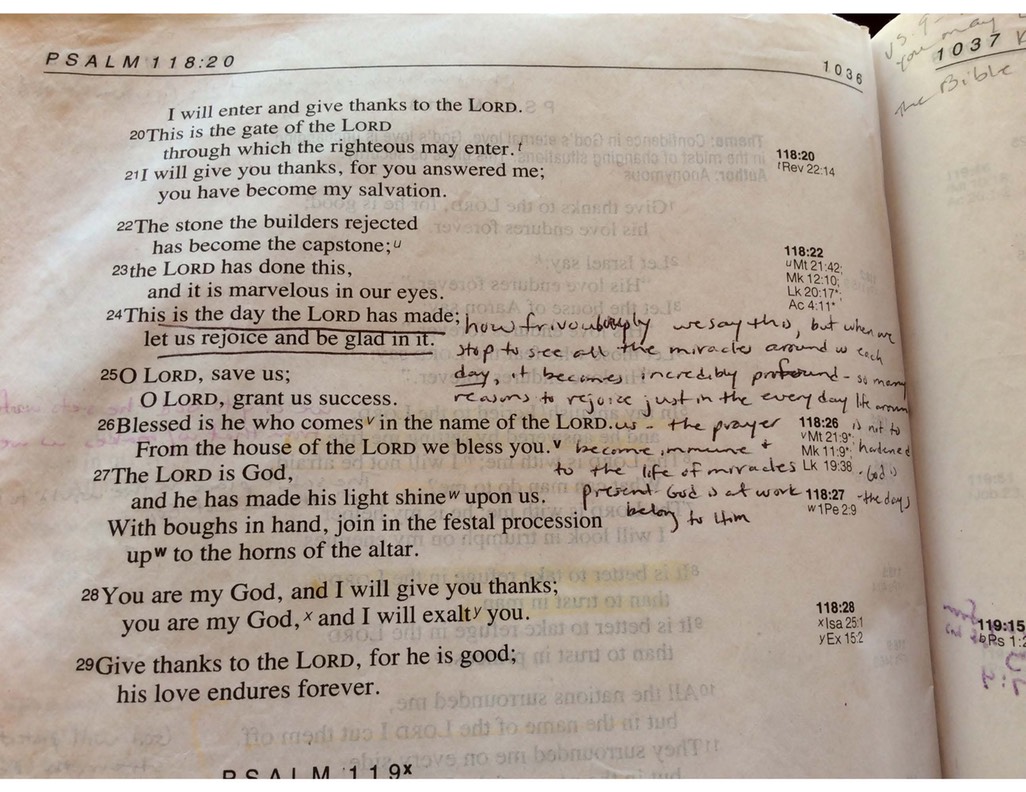 PSALM 118:20
1036
I will enter and give thanks to the LORD.
20This is the gate of the LORD
through which the righteous may enter.t
21I will give you thanks, for you answered me;
you have become my salvation.
22The stone the builders rejected
has become the capstone;u
23the LORD has done this,
and it is marvelous in our eyes.
24This is the day the LORD has made;
let us rejoice and be glad in it.
25O LORD, save us;
O LORD, grant us success.
26Blessed is he who comesv in the name of the LORD.
From the house of the LORD we bless you.v
27The LORD is God,
and he has made his light shinew upon us.
With boughs in hand, join in the festal procession
upw to the horns of the altar.
28You are my God, and I will give you thanks;
you are my God,x and I will exalty you.
29Give thanks to the LORD, for he is good;
his love endures forever.
PSALM 119x
how we say this, but when we
stop to see all the miracles around us each
day, it becomes incredibly profound - so many
reasons to rejoice just in the every day life around
us - the prayer is not to
become immune + hardened
to the life of miracles. God is
present God is at work - the days
belong to Him
118:20
tRev 22:14
118:22
uMt 21:42;
Mk 12:10;
Lk 20:17*;
Ac 4:11*
118:26
vMt 21:9*;
Mk 11:9*;
Lk 19:38
118:27
w1Pe 2:9
118:28
xIsa 25:1
yEx 15:2
vs. 9-
you may
1037
the Bible
119:15
bPs 1:2